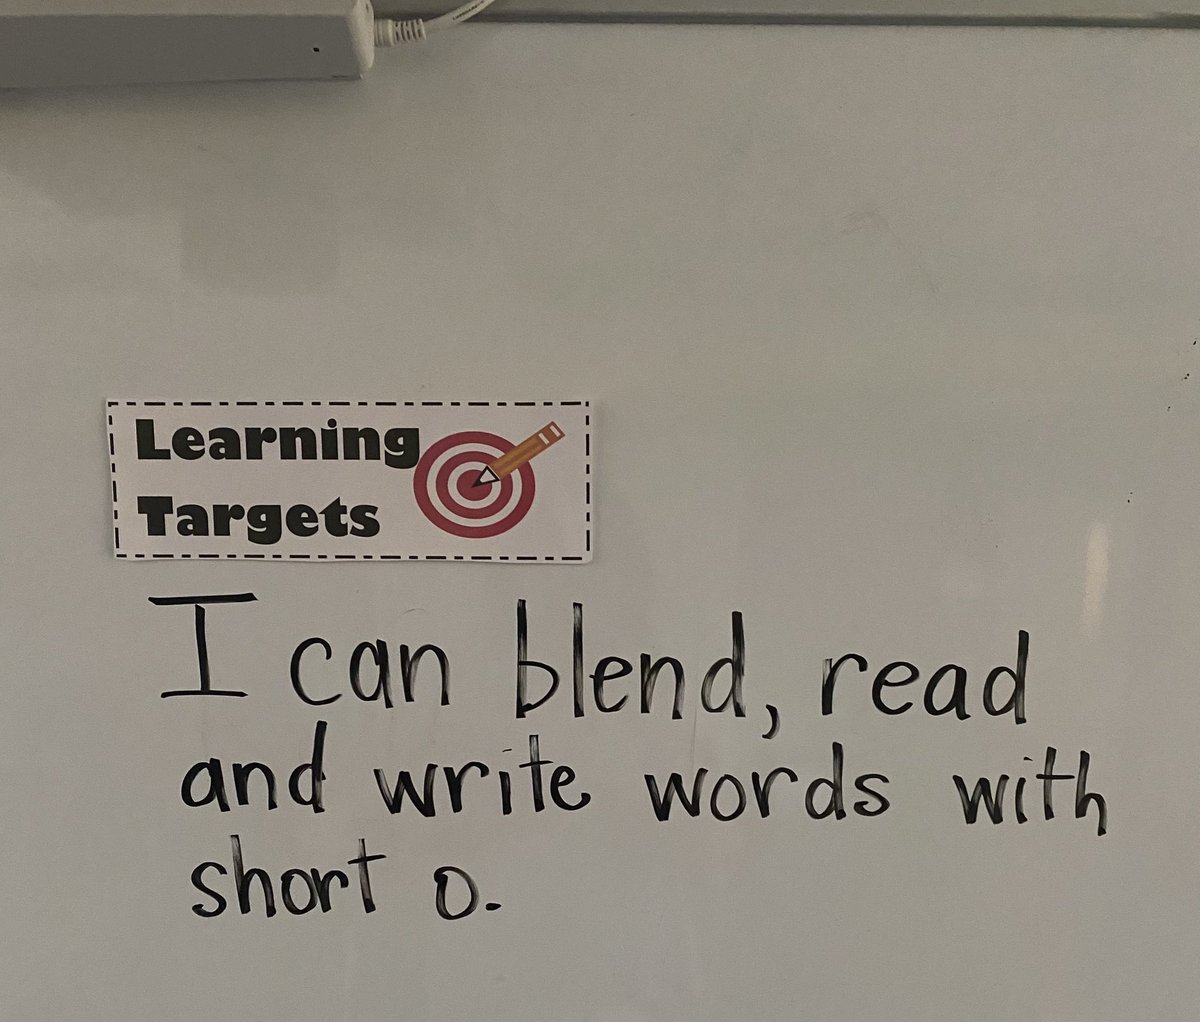 Learning
Targets
I can blend, read
and write words with
short o.